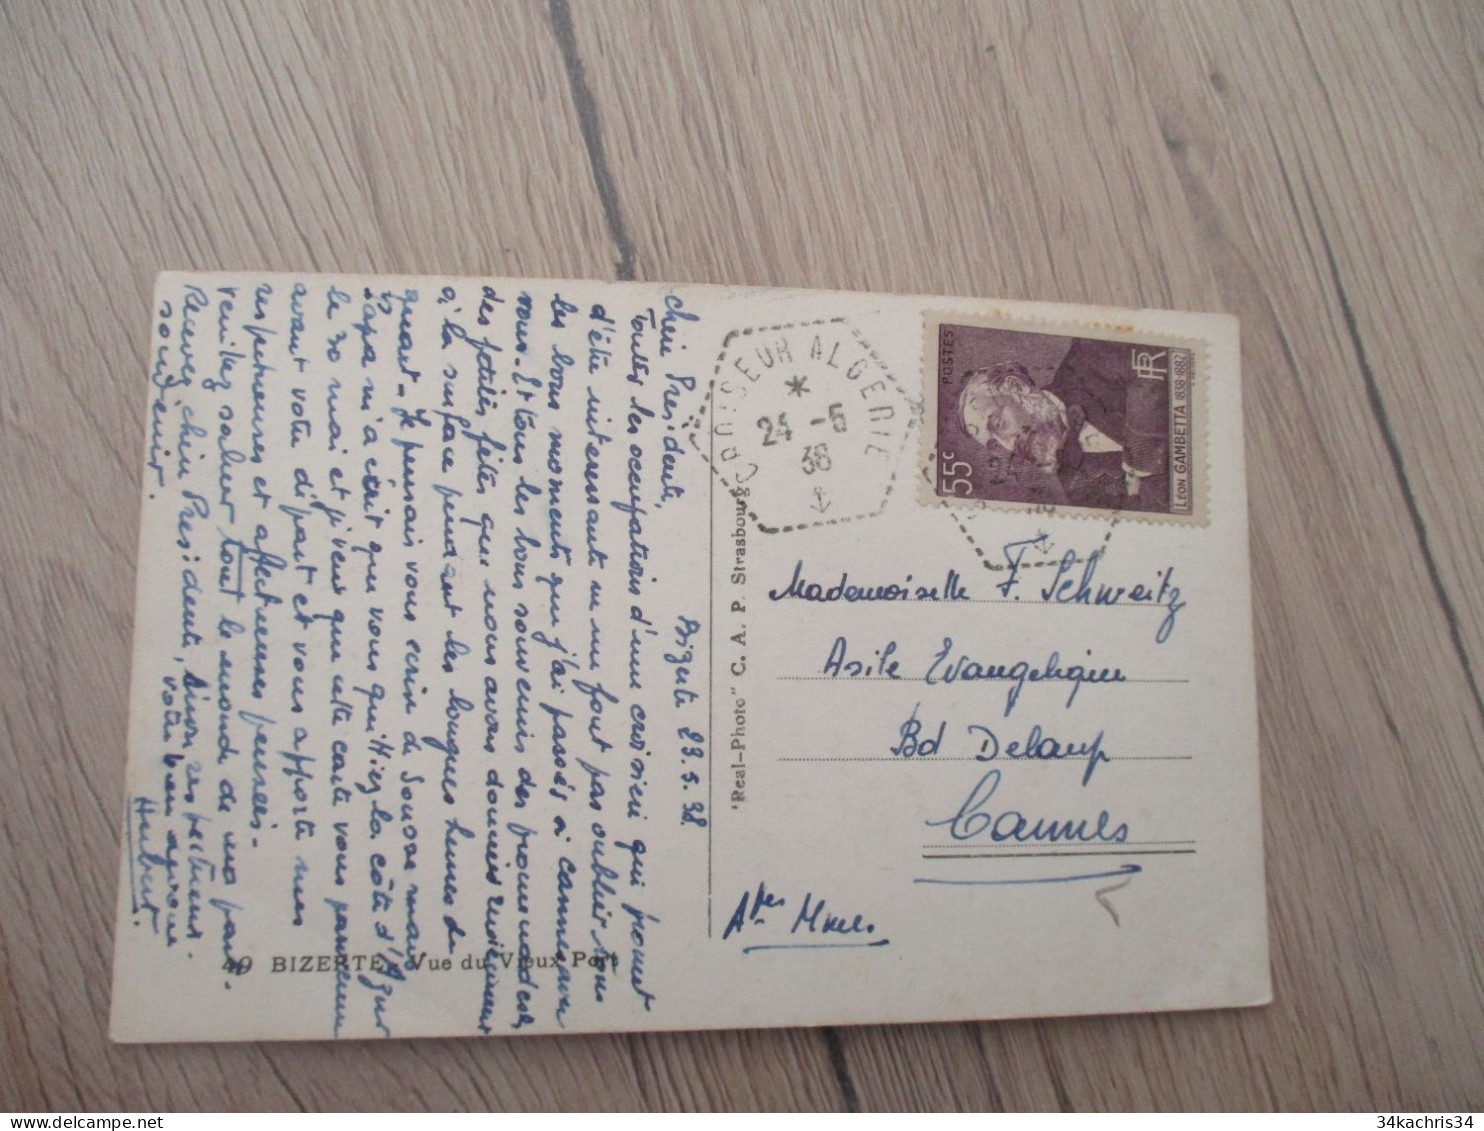 Bizerte 23.5.38.
Chère Présidente,
Toutes les occupations d'une croisière qui promet
d'être intéressante ne me font pas oublier tous
les bons moments que j'ai passés à Cannes avec
vous. Et tous les bons souvenirs des promenades,
des petites fêtes que nous avons données reviennent
à la surface pendant les longues heures de
quart. Je pensais vous écrire de Sousse mais
Papa m'a écrit que vous quittiez la côte d'Azur
le 30 mai et je veux que cette carte vous parvienne
avant votre départ et vous apporte mes
respectueuses et affectueuses pensées.
Veuillez saluer tout le monde de ma part.
Recevez, chère Présidente, sinon respectueux
votre bien affectueux
souvenir.
Hubert.
49 BIZERTE - Vue du Vieux Port
"Real-Photo" C. A. P. Strasbourg
CROISEUR ALGERIE
*
24 -5
38
POSTES
RF
55c
LÉON GAMBETTA 1838-1882
Mademoiselle F. Schweitz
Asile Evangélique
Bd Delaup
Cannes
Alpes Mmes
34kachris34